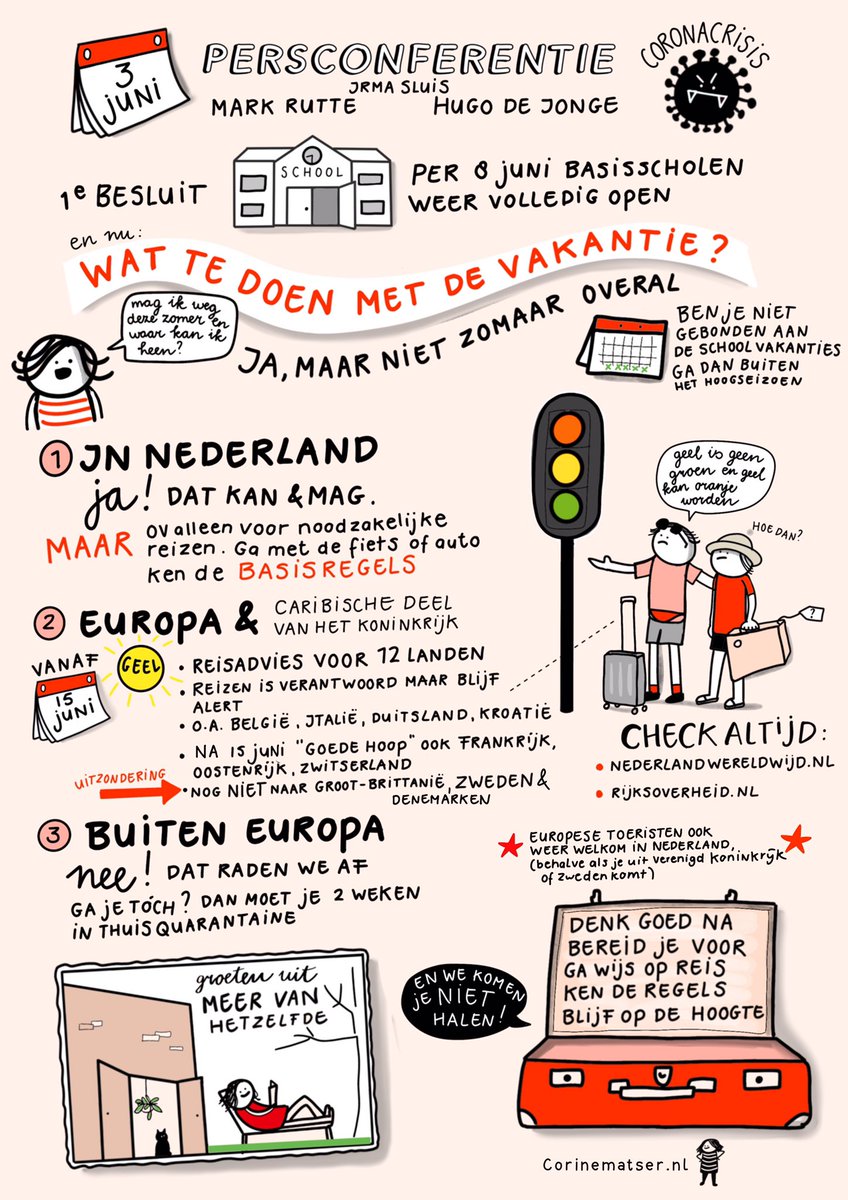 3
JUNI
PERSCONFERENTIE
IRMA SLUIS
MARK RUTTE HUGO DE JONGE
CORONACRISIS
1e BESLUIT
SCHOOL
PER 8 JUNI BASISSCHOLEN
WEER VOLLEDIG OPEN
en nu:
WAT TE DOEN MET DE VAKANTIE?
mag ik weg
deze zomer en
waar kan ik
heen?
JA, MAAR NIET ZOMAAR OVERAL
BEN JE NIET
GEBONDEN AAN
DE SCHOOLVAKANTIES
GA DAN BUITEN
HET HOOGSEIZOEN
1 IN NEDERLAND
ja! DAT KAN & MAG.
MAAR OV alleen voor noodzakelijke
reizen. Ga met de fiets of auto
ken de BASISREGELS
geel is geen
groen en geel
kan oranje
worden
HOE DAN?
?
2 EUROPA & CARIBISCHE DEEL
VAN HET KONINKRIJK
VANAF
15
JUNI
GEEL
• REISADVIES VOOR 12 LANDEN
• REIZEN IS VERANTWOORD MAAR BLIJF
ALERT
• O.A. BELGIË, ITALIË, DUITSLAND, KROATIË
• NA 15 JUNI "GOEDE HOOP" OOK FRANKRIJK,
OOSTENRIJK, ZWITSERLAND
UITZONDERING
• NOG NIET NAAR GROOT-BRITTANIË, ZWEDEN &
DENEMARKEN
CHECK ALTIJD:
• NEDERLANDWERELDWIJD.NL
• RIJKSOVERHEID.NL
3 BUITEN EUROPA
nee! DAT RADEN WE AF
GA JE TÓCH? DAN MOET JE 2 WEKEN
IN THUISQUARANTAINE
EUROPESE TOERISTEN OOK
WEER WELKOM IN NEDERLAND,
(behalve als je uit verenigd koninkrijk
of zweden komt)
groeten uit
MEER VAN
HETZELFDE
EN WE KOMEN
je NIET
HALEN!
DENK GOED NA
BEREID JE VOOR
GA WIJS OP REIS
KEN DE REGELS
BLIJF OP DE HOOGTE
Corinematser.nl